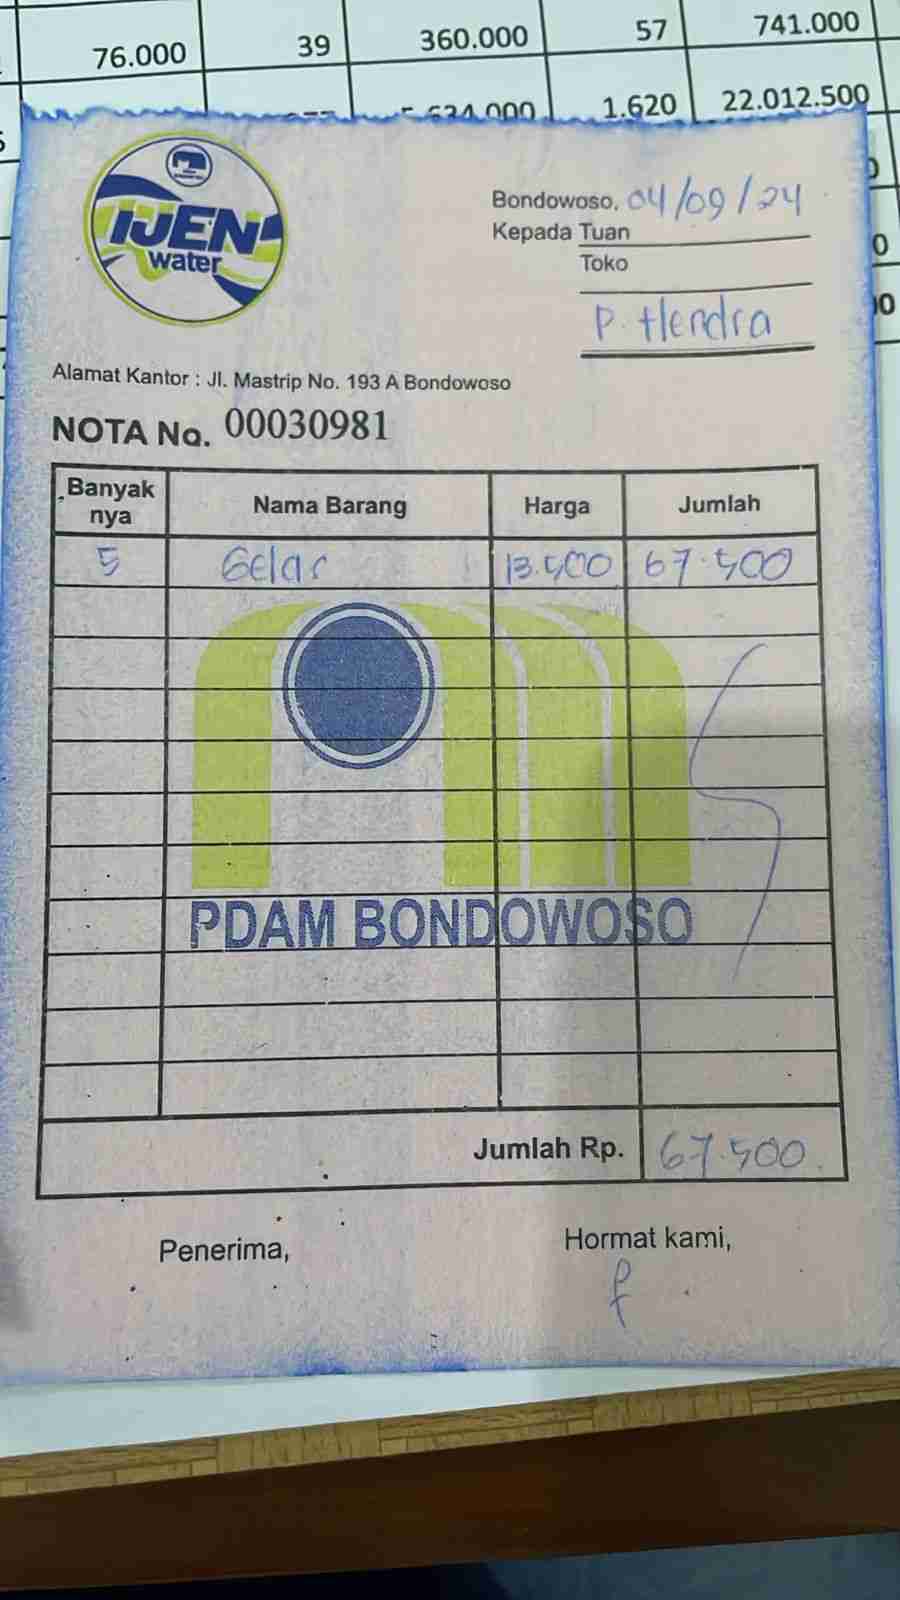 76.000 39 360.000 57 741.000
1.620 22.012.500
IJEN
water
Bondowoso, 04/09/24
Kepada Tuan
Toko
P. Hendra
Alamat Kantor : Jl. Mastrip No. 193 A Bondowoso
NOTA No. 00030981
Banyak
nya
Nama Barang
Harga
Jumlah
5 Gelas 13.500 67.500
PDAM BONDOWOSO
Jumlah Rp. 67.500
Penerima,
Hormat kami,